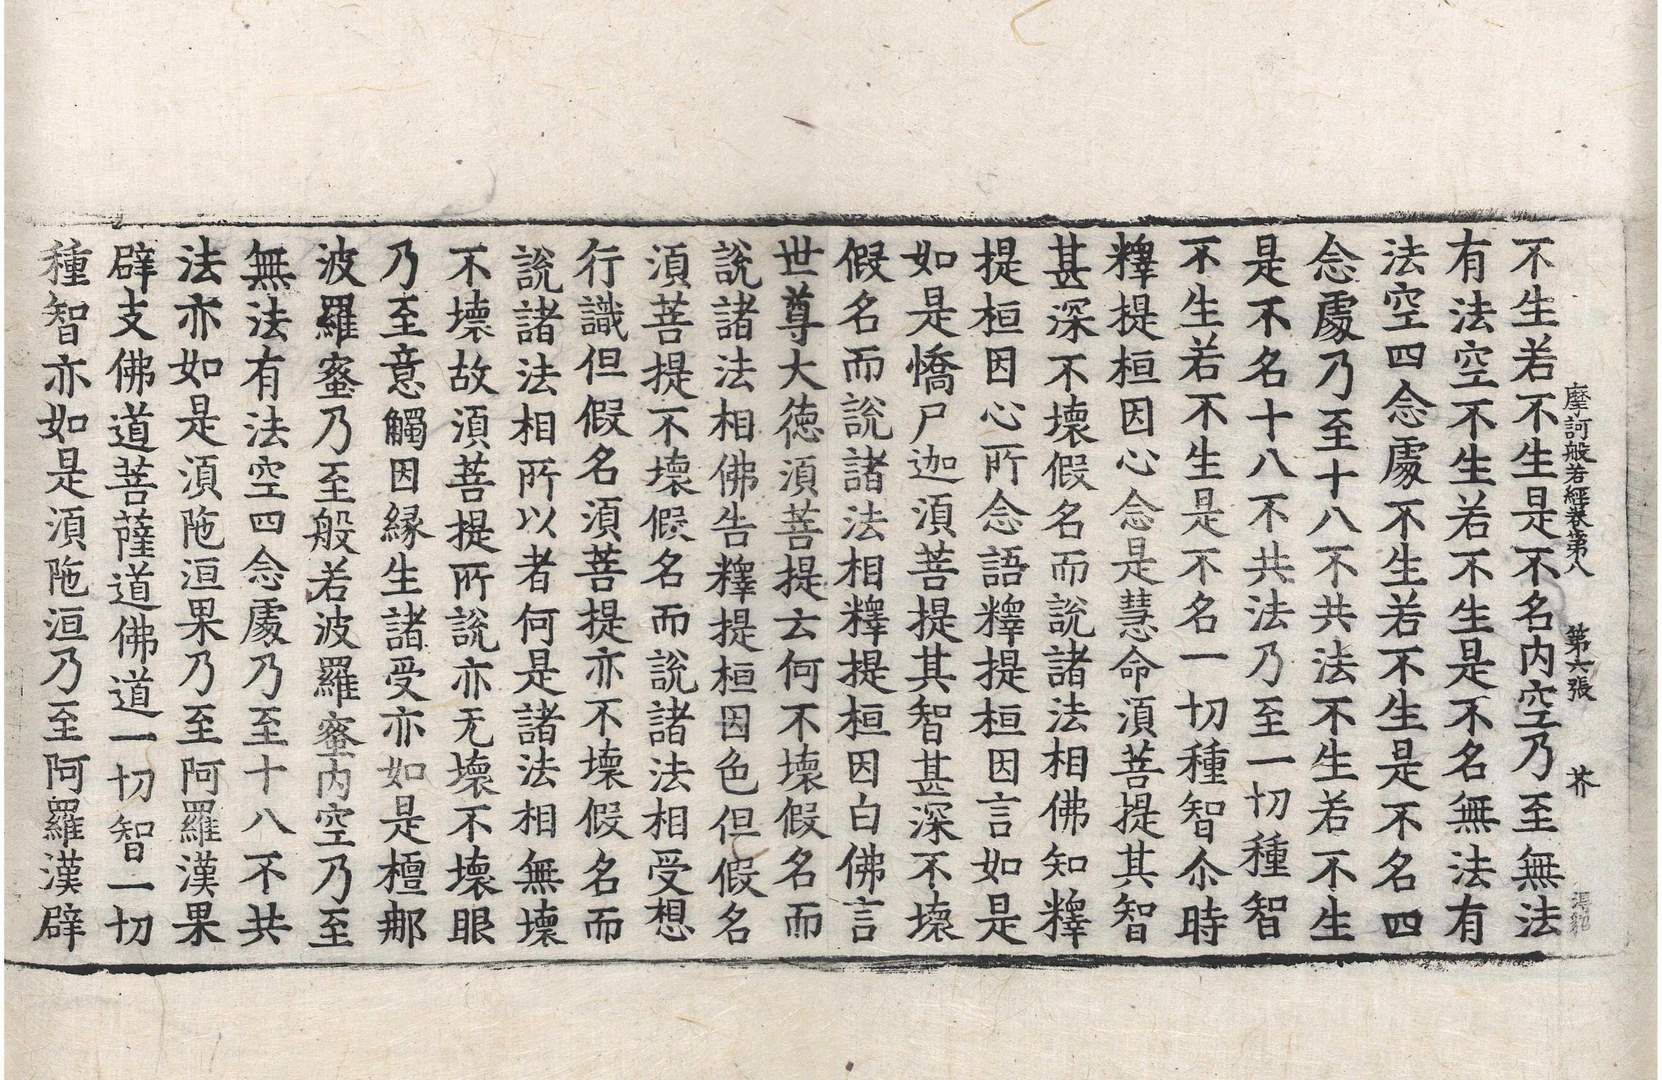 摩訶般若經卷第八　第六張　芥
不生若不生是不名内空乃至無法
有法空不生若不生是不名無法有
法空四念處不生若不生是不名四
念處乃至十八不共法不生若不生
是不名十八不共法乃至一切種智
不生若不生是不名一切種智尒時
釋提桓因心念是慧命湏菩提其智
甚深不壞假名而說諸法相佛知釋
提桓因心所念語釋提桓因言如是
如是憍尸迦湏菩提其智甚深不壞
假名而說諸法相釋提桓因白佛言
世尊大德湏菩提云何不壞假名而
說諸法相佛告釋提桓因色但假名
湏菩提不壞假名而說諸法相受想
行識但假名湏菩提亦不壞假名而
說諸法相所以者何是諸法相無壞
不壞故湏菩提所說亦无壞不壞眼
乃至意觸因緣生諸受亦如是檀那
波羅蜜乃至般若波羅蜜内空乃至
無法有法空四念處乃至十八不共
法亦如是湏陁洹果乃至阿羅漢果
辟支佛道菩薩道佛道一切智一切
種智亦如是湏陁洹乃至阿羅漢辟